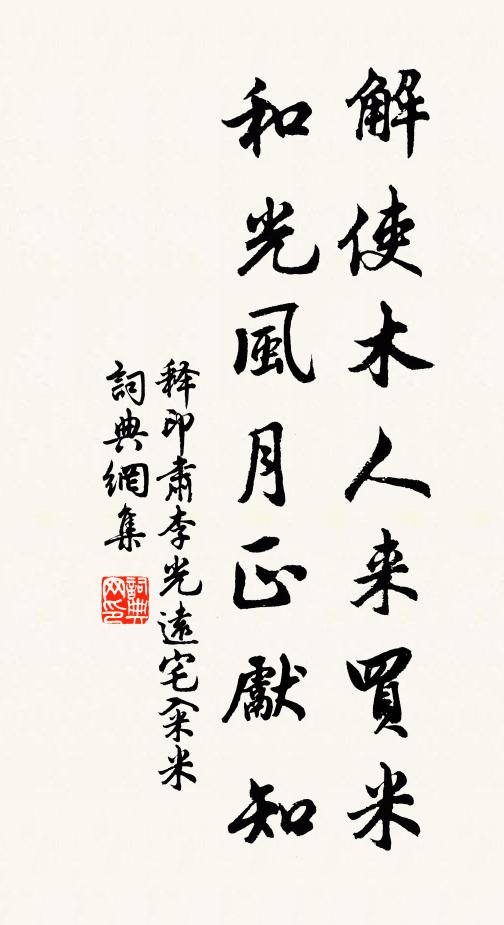 解使木人来買米
和光風月正獻知
释印肅李光遠宅籴米
詞典網集
詞典网印